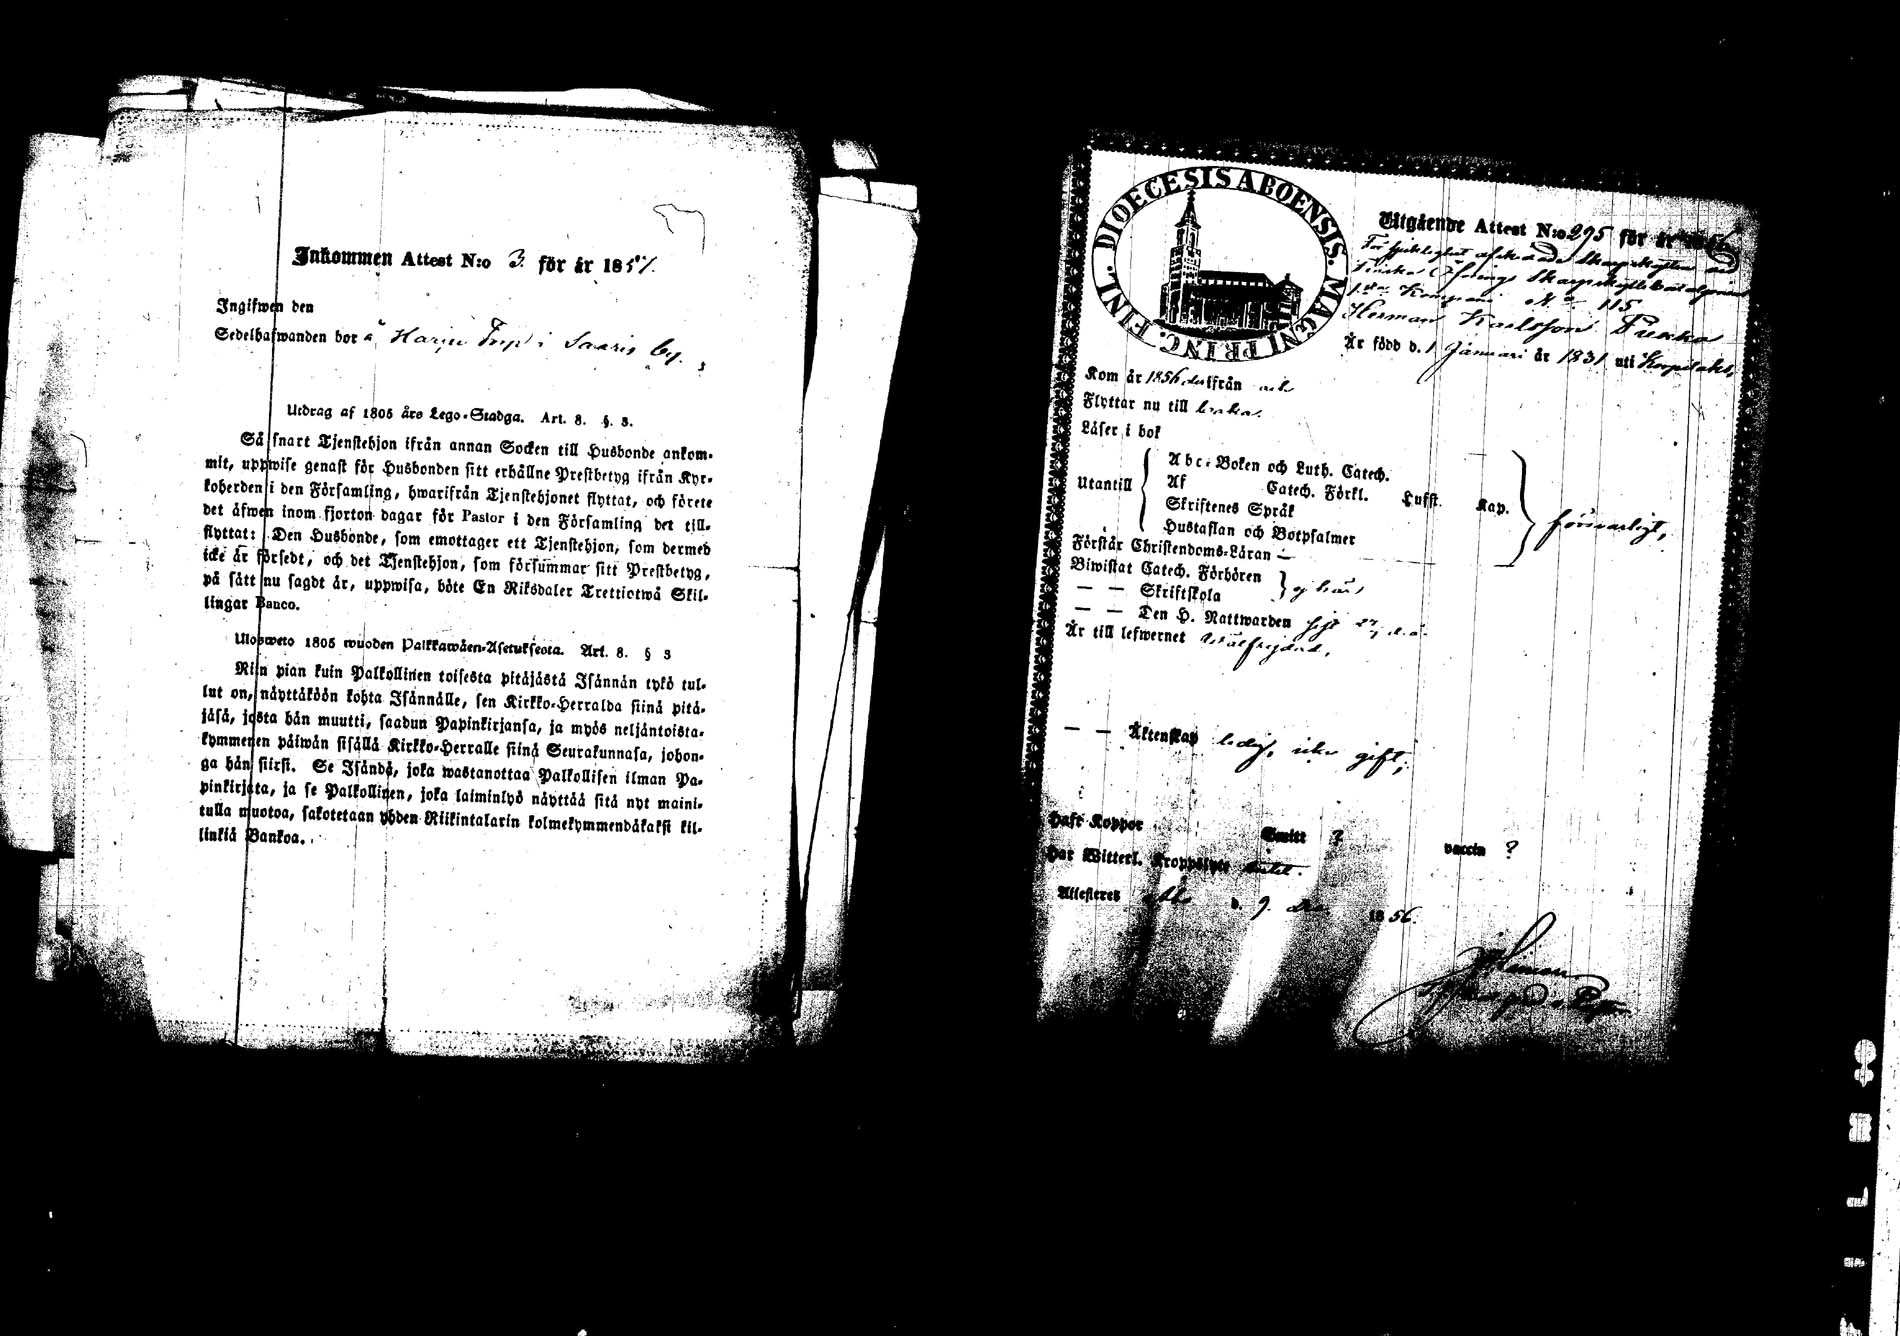 Inkommen Attest N:o 3. för år 1857.
Ingifwen den
Sedelhafwanden bor å Harju Trp i Saaris by.
Utdrag af 1805 års Lego-Stadga. Art. 8. §. 3.
Så snart Tjenstehjon ifrån annan Socken till Husbonde ankom-
mit, uppwise genast för Husbonden sitt erhållne Prestbetyg ifrån Kyr-
koherden i den Församling, hwarifrån Tjenstehjonet flyttat, och förete
det äfwen inom fjorton dagar för Pastor i den Församling det till-
flyttat: Den Husbonde, som emottager ett Tjenstehjon, som dermed
icke är försedt, och det Tjenstehjon, som försummar sitt Prestbetyg,
på sätt nu sagdt är, uppwisa, böte En Riksdaler Trettiotwå Skil-
lingar Banco.
Ulosweto 1805 wuoden Palkkawäen-Asetuksesta. Art. 8. § 3
Niin pian kuin Palkollinen toisesta pitäjästä Isännän tykö tul-
lut on, näyttäköön kohta Isännälle, sen Kirkko-Herralda siinä pitä-
jäsä, josta hän muutti, saadun Papinkirjansa, ja myös neljäntoista-
kymmenen päiwän sisällä Kirkko-Herralle siinä Seurakunnasa, johon-
ga hän siirsi. Se Isändä, joka wastanottaa Palkollisen ilman Pa-
pinkirjata, ja se Palkollinen, joka laiminlyö näyttää sitä nyt maini-
tulla muotoa, sakotetaan yhden Riikintalarin kolmekymmendäkaksi kil-
linkiä Bankoa.
DIOECESIS ABOENSIS. MAGNI PRINC. FINL.
Utgående Attest N:o 295 för år 1856
För sjuklighet afskedade Skarpskytten wid
Finska Skarpskyttebataljons
1sta Kompani N:o 115
Herman Karlsson Pukka
Är född d. 1 Januari år 1831 uti
Kom år 1856 ifrån
Flyttar nu till
Läser i bok
Utantill
Abc-Boken och Luth. Catech.
Af Catech. Förkl. Lufft. Kap.
Skriftenes Språk
Hustaflan och Botpsalmer
försvarligt,
Förstår Christendoms-Läran —
Biwistat Catech. Förhören
— — Skriftskola
ej här,
— — Den H. Nattwarden
Är till lefwernet wälfrejdad,
— — Äktenskap ledig, icke gift;
Haft Koppor Smitt ? vaccin ?
Har Witterl. Kroppslyte
Attesteres Åbo d. 9. Dec. 1856.